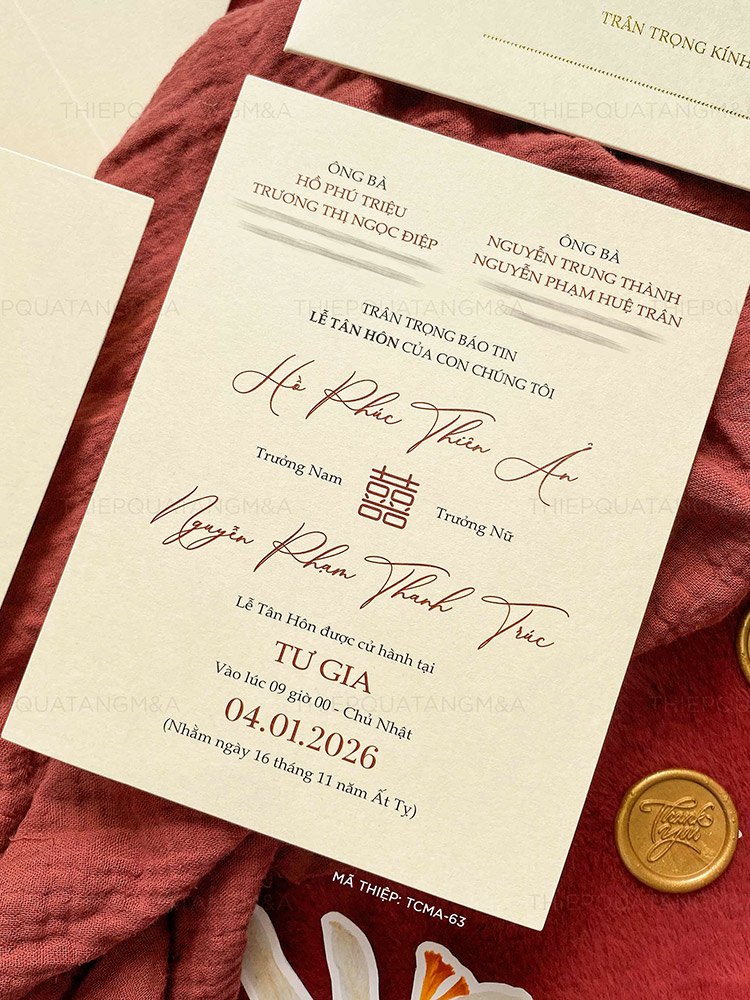 TRÂN TRỌNG KÍNH
THIEPQUATANGM&A
ÔNG BÀ
HỒ PHÚ TRIỆU
TRƯƠNG THỊ NGỌC ĐIỆP
ÔNG BÀ
NGUYỄN TRUNG THÀNH
NGUYỄN PHẠM HUỆ TRÂN
TRÂN TRỌNG BÁO TIN
LỄ TÂN HÔN CỦA CON CHÚNG TÔI
Hồ Phúc Thiên Ân
Trưởng Nam
囍
Trưởng Nữ
Nguyễn Phạm Thanh Trúc
Lễ Tân Hôn được cử hành tại
TƯ GIA
Vào lúc 09 giờ 00 - Chủ Nhật
04.01.2026
(Nhằm ngày 16 tháng 11 năm Ất Tỵ)
Thank you
MÃ THIỆP: TCMA-63